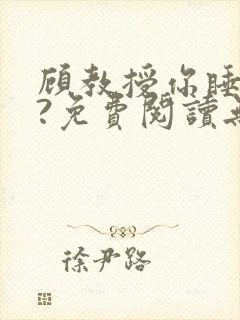 顾教授你睡
?免費閱讀
徐尹路